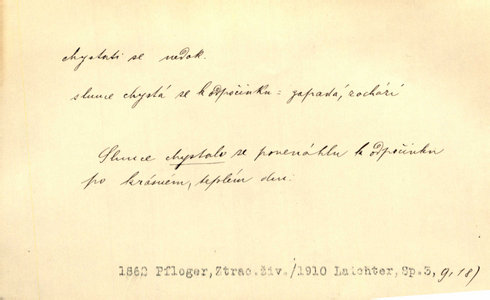 chystati se nedok.
slunce chystá se k odpočinku = zapadá, zachází
Slunce chystalo se ponenáhlu k odpočinku
po krásném, teplém dni.
1862 Pfleger, Ztrac. živ./1910 Laichter, Sp.3, 9, 18)